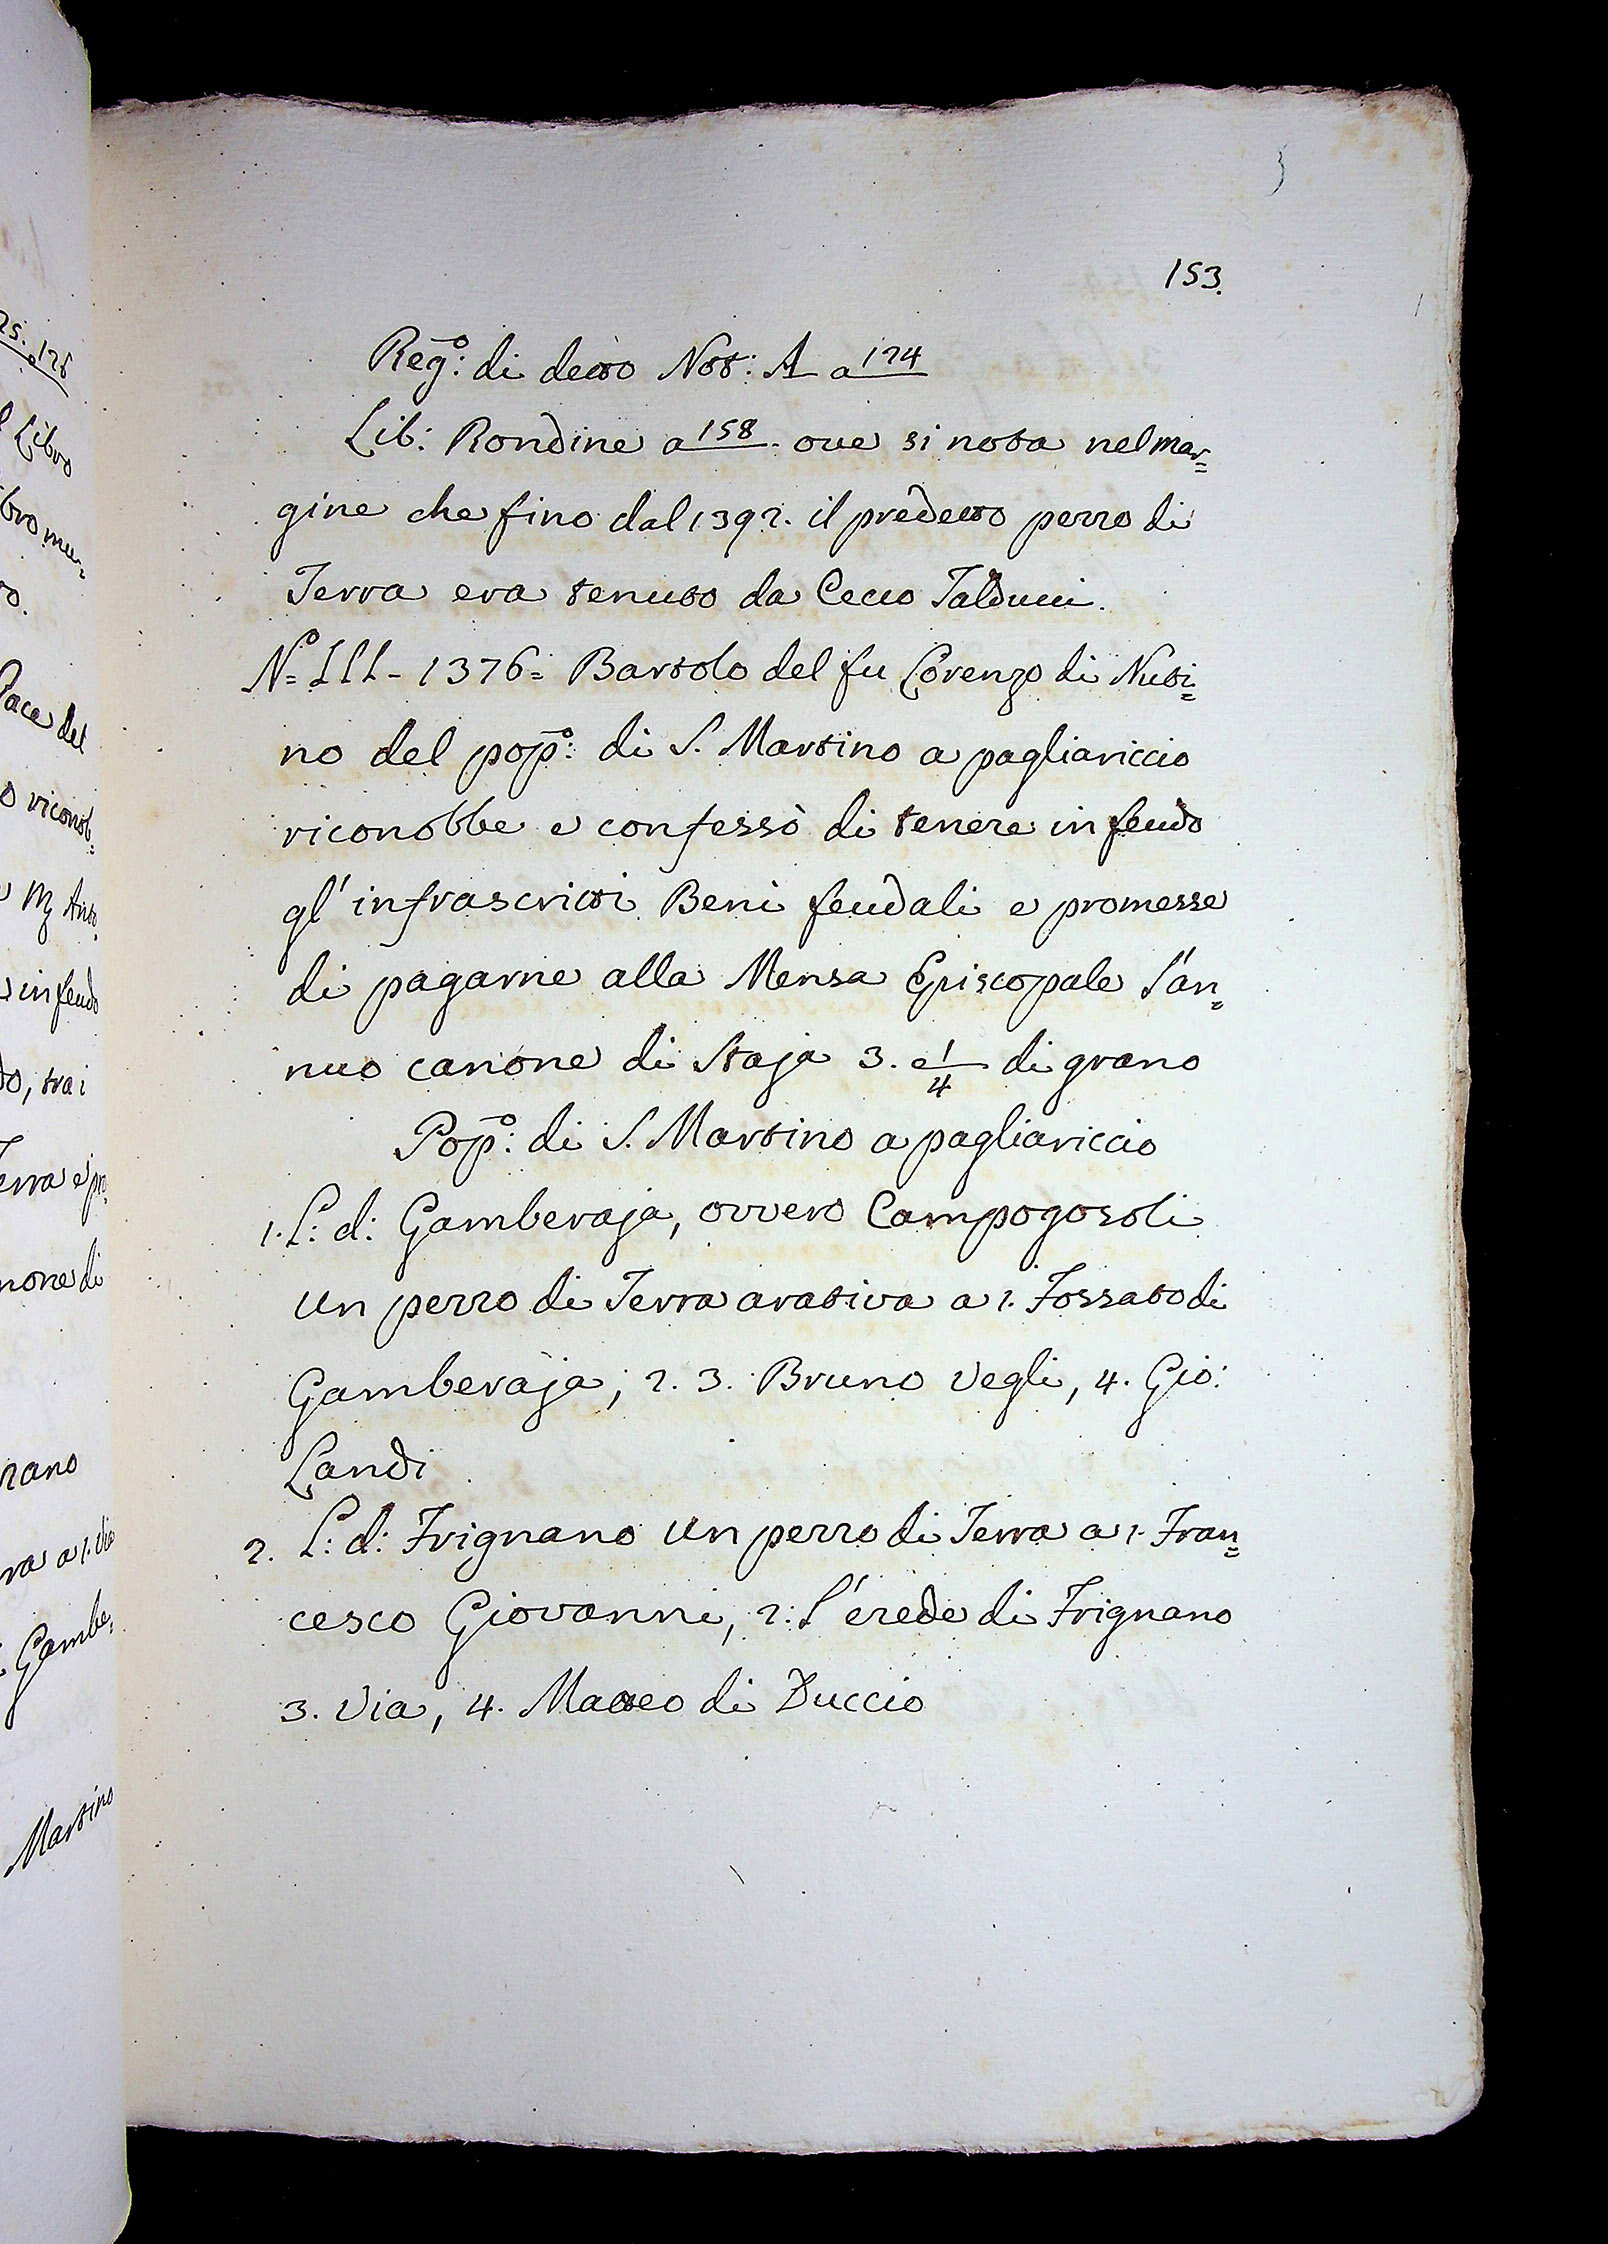 153.
Reg:º di detto Not: A a 124
Lib: Rondine a 158. ove si nota nel mar=
gine che fino dal 1392. il predetto pezzo di
Terra era tenuto da Cecco Talducci.
Nº= III - 1376= Bartolo del fu Lorenzo di Nuti=
no del pop:º di S. Martino a pagliariccio
riconobbe e confessò di tenere in feudo
gl' infrascritti Beni feudali e promesse
di pagarne alla Mensa Episcopale l'an=
nuo canone di Staja 3. e 1/4 di grano
Pop:º di S. Martino a pagliariccio
1. L: d: Gamberaja, ovvero Campogosoli
un pezzo di Terra arativa a 1. Fossato di
Gamberaja; 2. 3. Bruno Vegli, 4. Gio:
Landi
2. L: d: Frignano un pezzo di Terra a 1. Fran=
cesco Giovanni, 2: l'erede di Frignano
3. Via, 4. Matteo di Duccio
25. 126
Libro
bro mu=
Pace del
o riconob=
in feudo
do, trai
erra e pro=
none di
ra a 1. Via
Gambe=
Martino